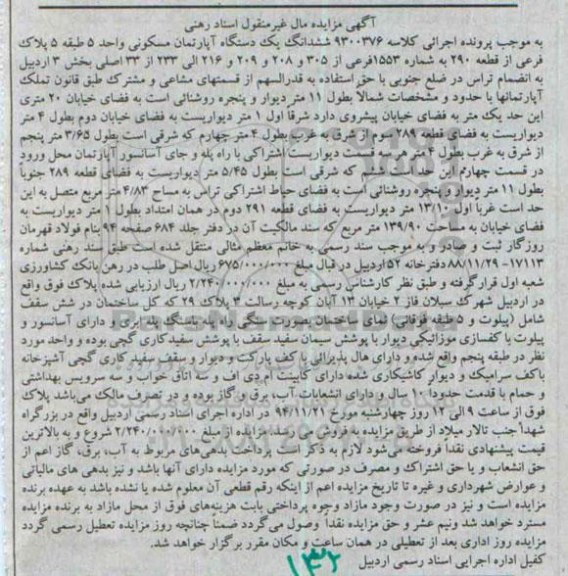 آگهی مزایده مال غیرمنقول اسناد رهنی
به موجب پرونده اجرائی کلاسه ۹۳۰۰۳۷۶ ششدانگ یک دستگاه آپارتمان مسکونی واحد ۵ طبقه ۵ پلاک
فرعی از قطعه ۲۹۰ به شماره ۱۵۵۳فرعی از ۳۰۵ و ۲۰۸ و ۲۰۹ و ۲۱۶ الی ۲۳۳ از ۳۳ اصلی بخش ۳ اردبیل
به انضمام تراس در ضلع جنوبی با حق استفاده به قدرالسهم از قسمتهای مشاعی و مشترک طبق قانون تملک
آپارتمانها با حدود و مشخصات شمالاً بطول ۱۱ متر دیوار و پنجره روشنائی است به فضای خیابان ۲۰ متری
این حد یک متر به فضای خیابان پیشروی دارد شرقا اول ۱ متر دیواریست به فضای خیابان دوم بطول ۴ متر
دیواریست به فضای قطعه ۲۸۹ سوم از شرق به غرب بطول ۴ متر چهارم که شرقی است بطول ۳/۶۵ متر پنجم
از شرق به غرب بطول ۴ متر سه قسمت دیواریست اشتراکی با راه پله و جای آسانسور آپارتمان محل ورود
در قسمت چهارم این حد است ششم که شرقی است بطول ۵/۴۵ متر دیواریست به فضای قطعه ۲۸۹ جنوباً
بطول ۱۱ متر دیوار و پنجره روشنائی است به فضای حیاط اشتراکی تراس به مساح ۴/۸۳ متر مربع متصل به این
حد است غربا اول ۱۳/۱۰ متر دیواریست به فضای قطعه ۲۹۱ دوم در همان امتداد بطول ۱ متر دیواریست به
فضای خیابان به مساحت ۱۳۹/۹۰ متر مربع که سند مالکیت آن در دفتر جلد ۶۸۴ صفحه ۹۴ بنام فولاد قهرمان
روزگار ثبت و صادر و به موجب سند رسمی به خانم معظم مثالی منتقل شده است طبق سند رهنی شماره
۱۷۱۱۳- ۸۸/۱۱/۲۹ دفترخانه ۵۲ اردبیل در قبال مبلغ ۶۷۵/۰۰۰/۰۰۰ ریال اصل طلب در رهن بانک کشاورزی
شعبه اول قرار گرفته و طبق نظر کارشناس رسمی به مبلغ ۲/۲۴۰/۰۰۰/۰۰۰ ریال ارزیابی شده پلاک فوق واقع
در اردبیل شهرک سبلان فاز ۲ خیابان ۱۳ آبان کوچه رسالت ۳ پلاک ۲۹ که کل ساختمان در شش سقف
شامل (پیلوت و ۵ طبقه فوقانی) نمای ساختمان بصورت سنگی راه پله با سنگ پله بری و دارای آسانسور و
پیلوت با کفسازی موزائیکی دیوار با پوشش سیمان سفید سقف با پوشش سفیدکاری گچی بوده و واحد مورد
نظر در طبقه پنجم واقع شده و دارای هال پذیرائی با کف پارکت و دیوار و سقف سفید کاری گچی آشپزخانه
باکف سرامیک و دیوار کاشیکاری شده دارای کابینت ام دی اف و سه اتاق خواب و سه سرویس بهداشتی
و حمام با قدمت حدوداً ۱۰ سال و دارای انشعابات آب، برق و گاز بوده و در تصرف مالک می‌باشد پلاک
فوق از ساعت ۹ الی ۱۲ روز چهارشنبه مورخ ۹۴/۱۱/۲۱ در اداره اجرای اسناد رسمی اردبیل واقع در بزرگراه
شهدا جنب تالار میلاد از طریق مزایده به فروش می رسد مزایده از مبلغ ۲/۲۴۰/۰۰۰/۰۰۰ شروع و به بالاترین
قیمت پیشنهادی نقداً فروخته می‌شود لازم به ذکر است پرداخت بدهی‌های مربوط به آب، برق، گاز اعم از
حق انشعاب و یا حق اشتراک و مصرف در صورتی که مورد مزایده دارای آنها باشد و نیز بدهی های مالیاتی
و عوارض شهرداری و غیره تا تاریخ مزایده اعم از اینکه رقم قطعی آن معلوم شده یا نشده باشد به عهده برنده
مزایده است و نیز در صورت وجود مازاد وجوه پرداختی بابت هزینه‌های فوق از محل مازاد به برنده مزایده
مسترد خواهد شد ونیم عشر و حق مزایده نقدا وصول می‌گردد ضمناً چنانچه روز مزایده تعطیل رسمی گردد
مزایده روز اداری بعد از تعطیلی در همان ساعت و مکان مقرر برگزار خواهد شد.
کفیل اداره اجرایی اسناد رسمی اردبیل